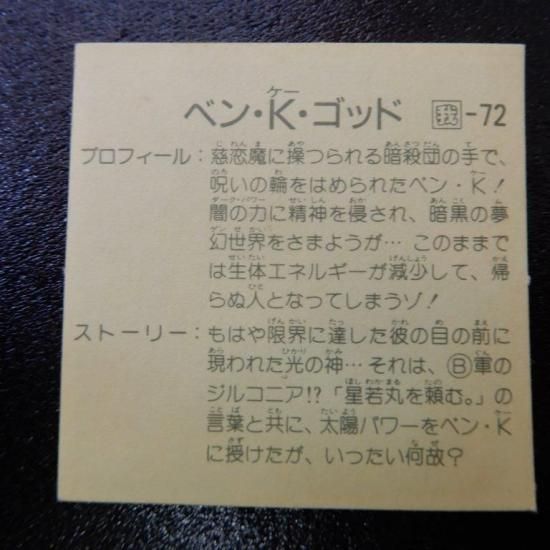 ベン・K・ゴッド 我-72
プロフィール：慈恋魔に操つられる暗殺団の手で、
呪いの輪をはめられたベン・K！
闇の力に精神を侵され、暗黒の夢
幻世界をさまようが… このままで
は生体エネルギーが減少して、帰
らぬ人となってしまうゾ！
ストーリー：もはや限界に達した彼の目の前に
現われた光の神… それは、Ⓑ軍の
ジルコニア!?「星若丸を頼む。」の
言葉と共に、太陽パワーをベン・K
に授けたが、いったい何故？